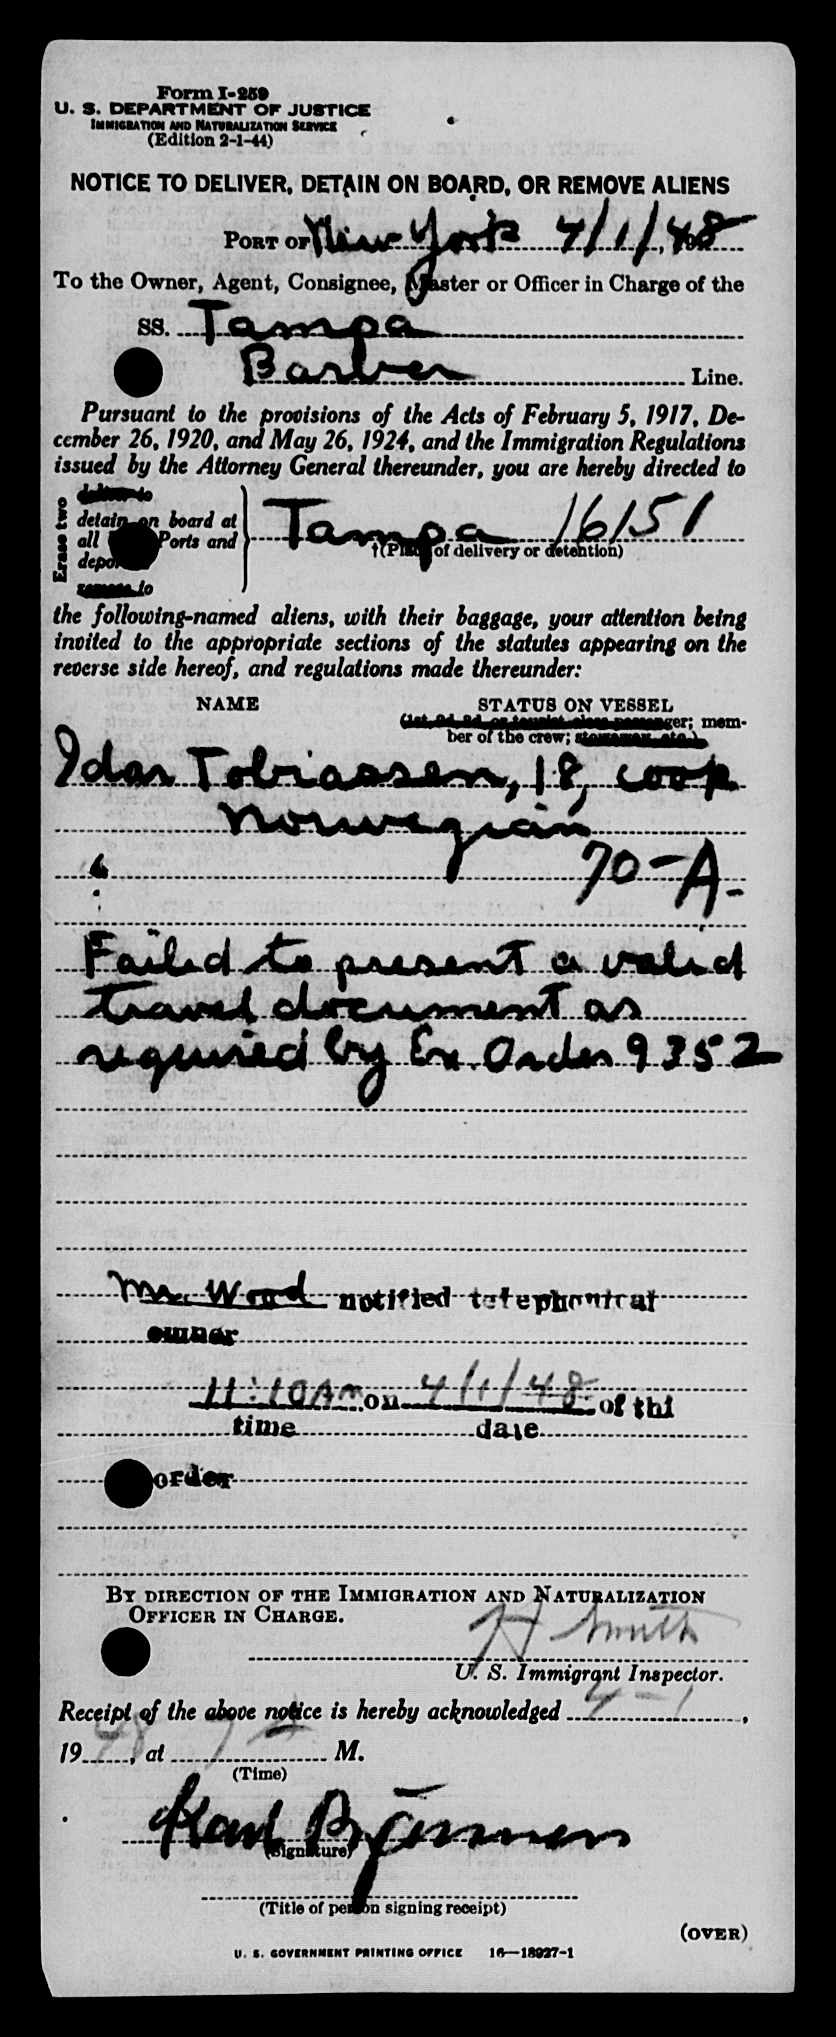 Form I-259
U. S. DEPARTMENT OF JUSTICE
IMMIGRATION AND NATURALIZATION SERVICE
(Edition 2-1-44)
NOTICE TO DELIVER, DETAIN ON BOARD, OR REMOVE ALIENS
PORT OF New York 4/1/, 48
To the Owner, Agent, Consignee, Master or Officer in Charge of the
SS. Tampa
Barber Line.
Pursuant to the provisions of the Acts of February 5, 1917, De-
cember 26, 1920, and May 26, 1924, and the Immigration Regulations
issued by the Attorney General thereunder, you are hereby directed to
Erase two
deliver to
detain on board at
all Ports and
Tampa 16151
†(Place of delivery or detention)
remove to
the following-named aliens, with their baggage, your attention being
invited to the appropriate sections of the statutes appearing on the
reverse side hereof, and regulations made thereunder:
NAME STATUS ON VESSEL
(1st, 2d, 3d, or tourist class passenger; mem-
ber of the crew; stowaway, etc.)
Idar Tobiassen, 18, cook
Norwegian
70-A-
Failed to present a valid
travel document as
required by Ex. Order 9352
Mr. Wood notified telephonical
owner
11:10 AM on 4/1/48 of thi
time date
order
BY DIRECTION OF THE IMMIGRATION AND NATURALIZATION
OFFICER IN CHARGE.
H Smith
U. S. Immigrant Inspector.
Receipt of the above notice is hereby acknowledged 4-1,
1948, at M.
(Time)
Karl
(Signature)
(Title of person signing receipt)
(OVER)
U. S. GOVERNMENT PRINTING OFFICE 16—18927-1